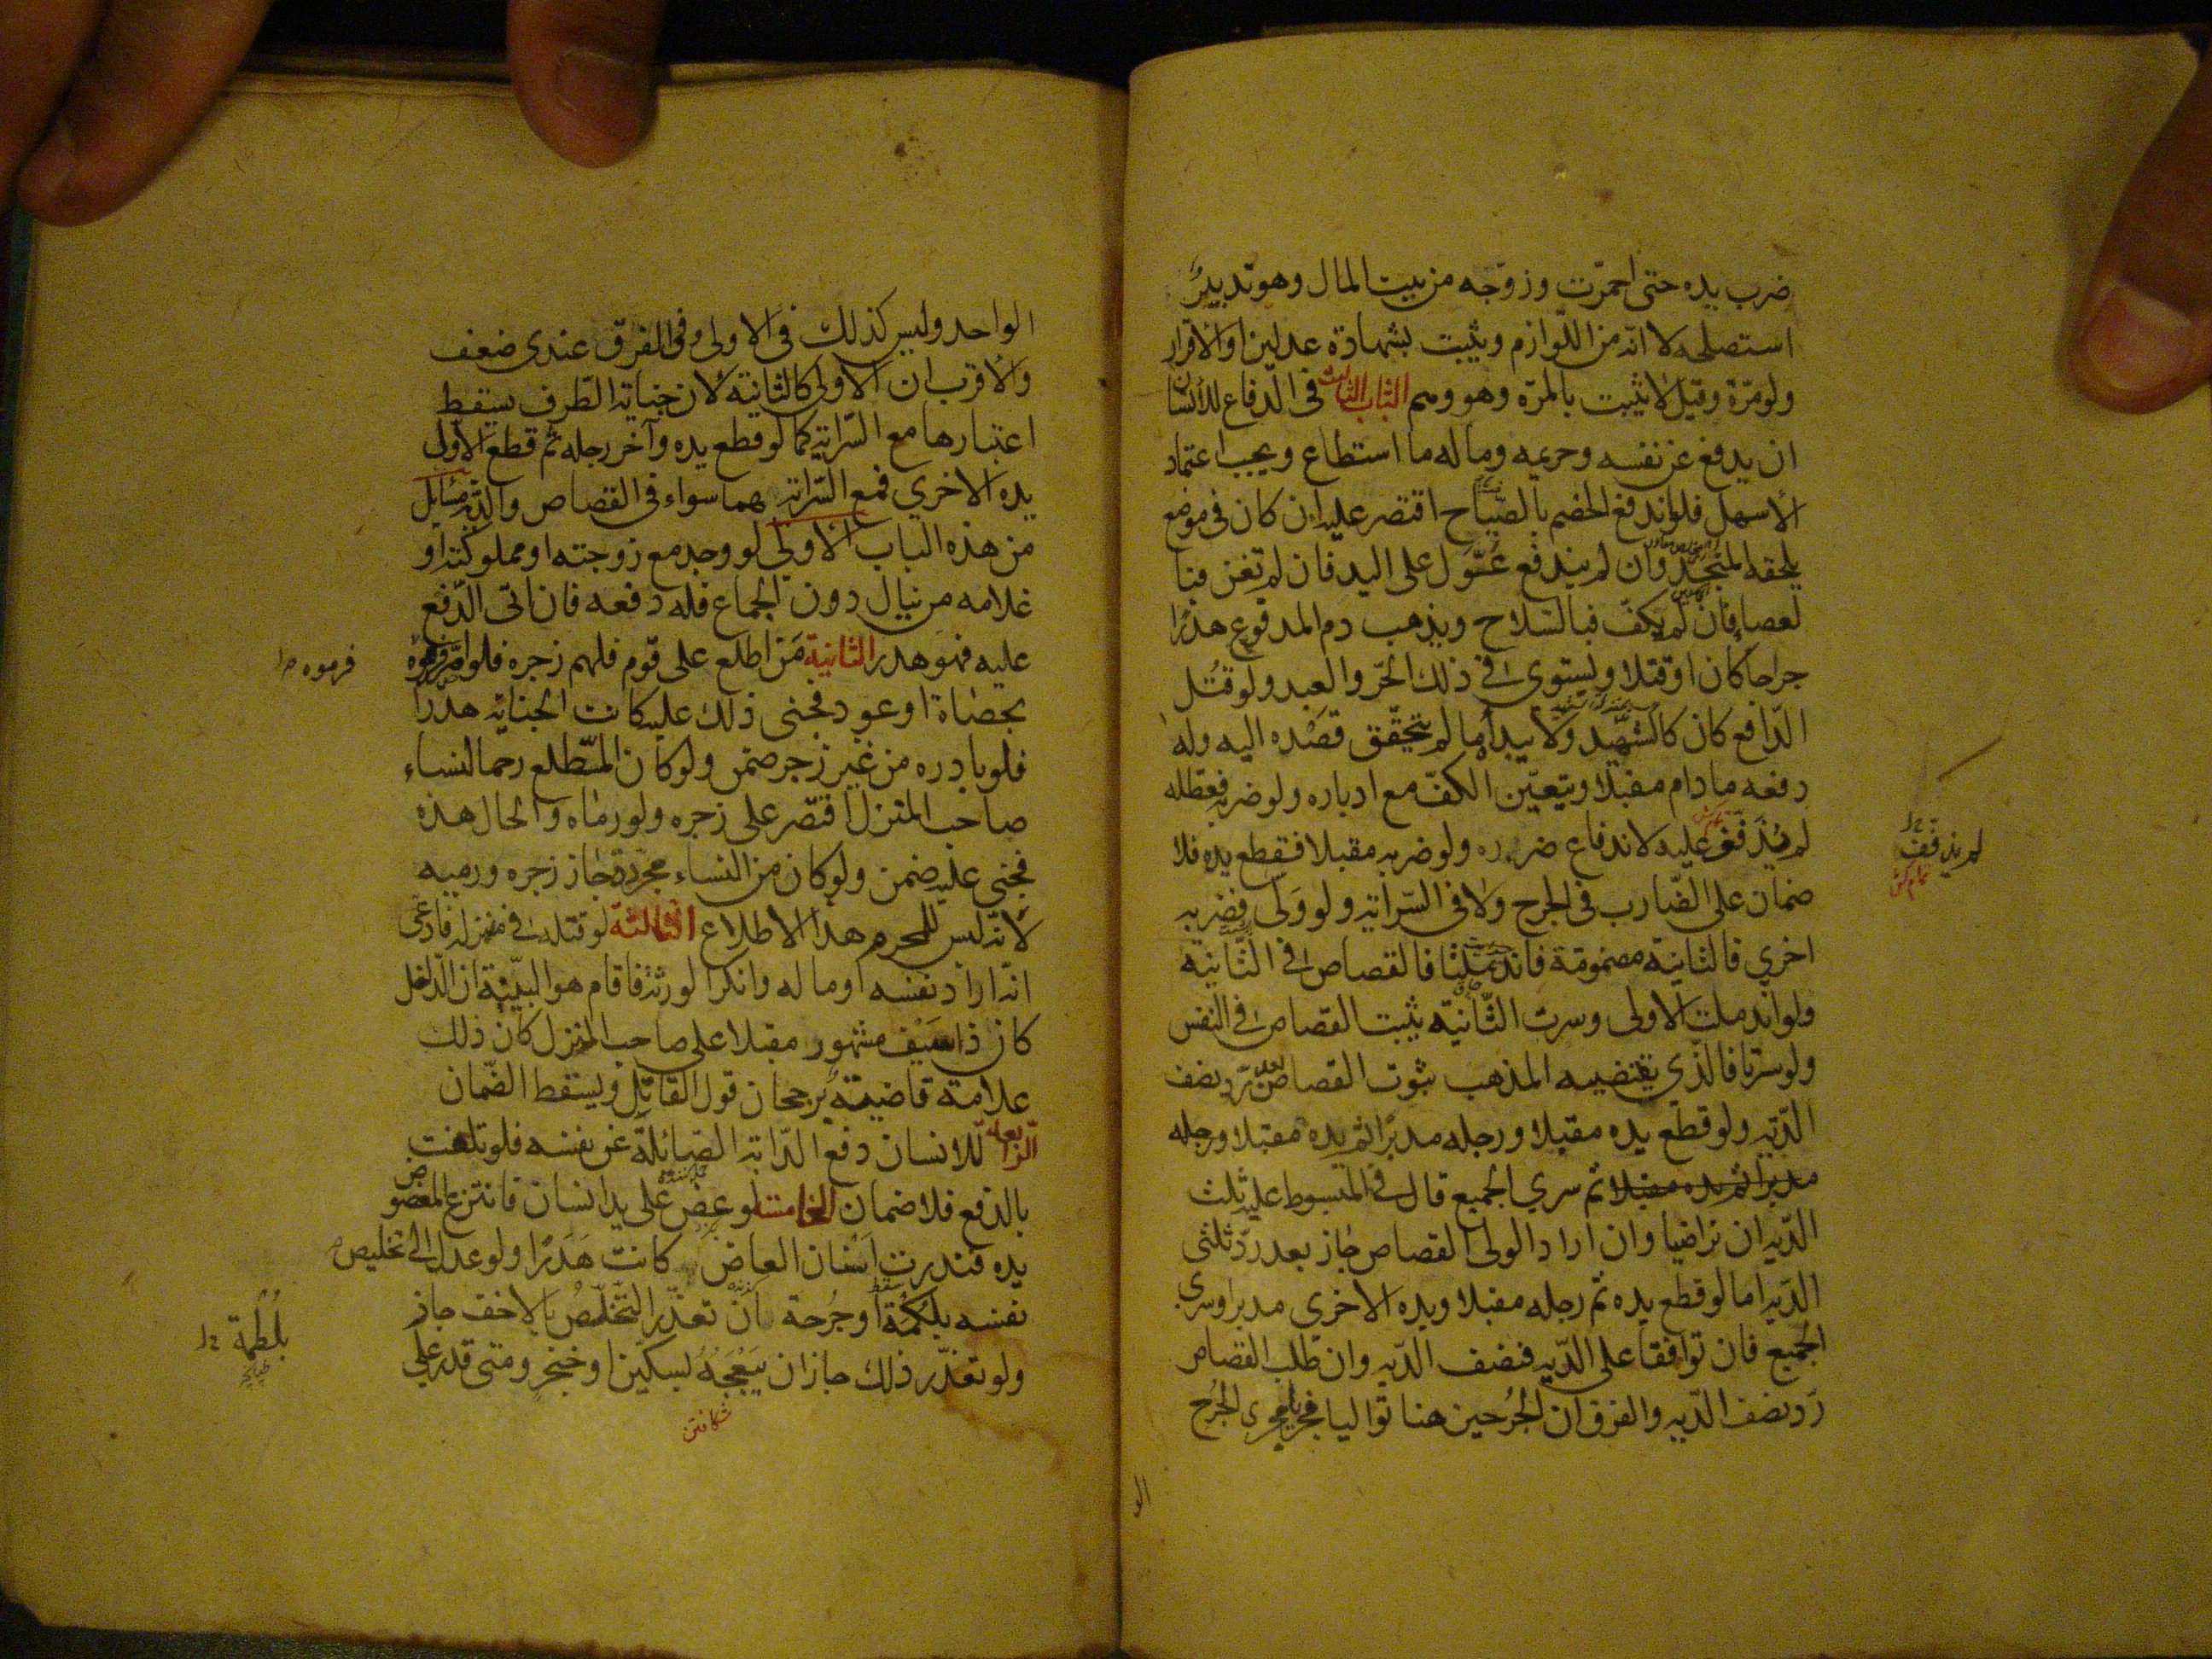 ضرب يده حتى احمرّت وزوّجه من بيت المال وهو تدبيرٌ
استصلحه لا انّه من اللّوازم ويثبت بشهادة عدلين او الاقرار
ولو مرّة وقيل لا يثبت بالمرّه وهو وهم الباب الثالث فى الدفاع للانسان
ان يدفع عن نفسه وحريمه وماله ما استطاع ويجب اعتماد
الاسهل فلو اندفع الخصم بالصّياح اقتصر عليه ان كان فى موضع
يلحقه المنجد وان لم يندفع عوّل على اليد فان لم تغن فبا
لعصا فان لم يكف فبالسّلاح ويذهب دم المدفوع هدرًا
جراحا كان او قتلا ويستوى فى ذلك الحرّ والعبد ولو قُتل
الدّافع كان كالشّهيد ولا يبدأ ما لم يتحقّق قصده اليه وله
دفعه ما دام مقبلا ويتعيّن الكفّ مع ادباره ولو ضربه فعطله
لم يذفف عليه لاندفاع ضرره ولو ضربه مقبلا فقطع يده فلا
ضمان على الضّارب فى الجرح ولا فى السّراية ولو ولّى فضربه
اخرى فالثانية مضمونة فان اندملتا فالقصاص فى الثّانية
ولو اندملت الاولى وسرت الثّانية يثبت القصاص فى النفس
ولو سرتا فالّذى يقتضيه المذهب ثبوت القصاص بعد ردّ نصف
الدّيه ولو قطع يده مقبلا ورجله مدبرًا ثم يده مقبلا ورجله
مدبرا ثم يده مقبلا ثم سرى الجميع قال فى المبسوط عليه ثلث
الدّيه ان تراضيا وان اراد الولى القصاص جاز بعد ردّ ثلثى
الدّيه اما لو قطع يده ثم رجله مقبلا ويده الاخرى مدبرا وسرى
الجميع فان توافقا على الدّيه فنصف الدّيه وان طلب القصاص
ردّ نصف الدّيه والفرق ان الجُرحين هنا تواليا فجريا مجرى الجُرح
لم يذفف
الو
الواحد وليس كذلك فى الاولى وفى الفرق عندى ضعف
والاقرب ان الاولى كالثانية لان جناية الطّرف يسقط
اعتبارها مع السّراية كما لو قطع يده وآخر رجله ثم قطع الاول
يده الاخرى فمع السّراية هما سواء فى القصاص والدّية مسايل
من هذه الباب الاولى لو وجد مع زوجته او مملوكته او
غلامه من ينال دون الجماع فله دفعه فان اتى الدّفع
عليه فهو هدر الثانية مَن اطلع على قوم فلهم زجره فلو اصرّ فرموه
بحصاة او عود فجنى ذلك عليه كانت الجناية هدرا
فلو بادره من غير زجر ضمن ولو كان المطّلع رحما لنساء
صاحب المنزل اقتصر على زجره ولو رماه والحال هذه
فجنى عليه ضمن ولو كان من النساء مجردة جاز زجره ورميه
لانّه ليس للمحرم هذا الاطلاع الثالثة لو قتله فى منزله فادعى
انّه اراد نفسه او ماله وانكر الورثه فاقام هو البيّنة ان الدّاخل
كان ذا سيف مشهور مقبلا على صاحب المنزل كان ذلك
علامة قاضيةً برجحان قول القاتل ويسقط الضّمان
الرّابعة للانسان دفع الدّابة الصّائلة عن نفسه فلو تلفت
بالدّفع فلا ضمان الخامسة لو عضّ على يد انسان فانتزع المعضوض
يده فندرت اسنان العاض كانت هَدَرًا ولو عدل الى تخليص
نفسه بلكمة او جرحة ان تعذّر التّخلّص بالاخف جاز
ولو تعذّر ذلك جاز ان يَبعجهُ بسكين او خنجر ومتى قدر على
فرموه
بلطمة
شكافتن